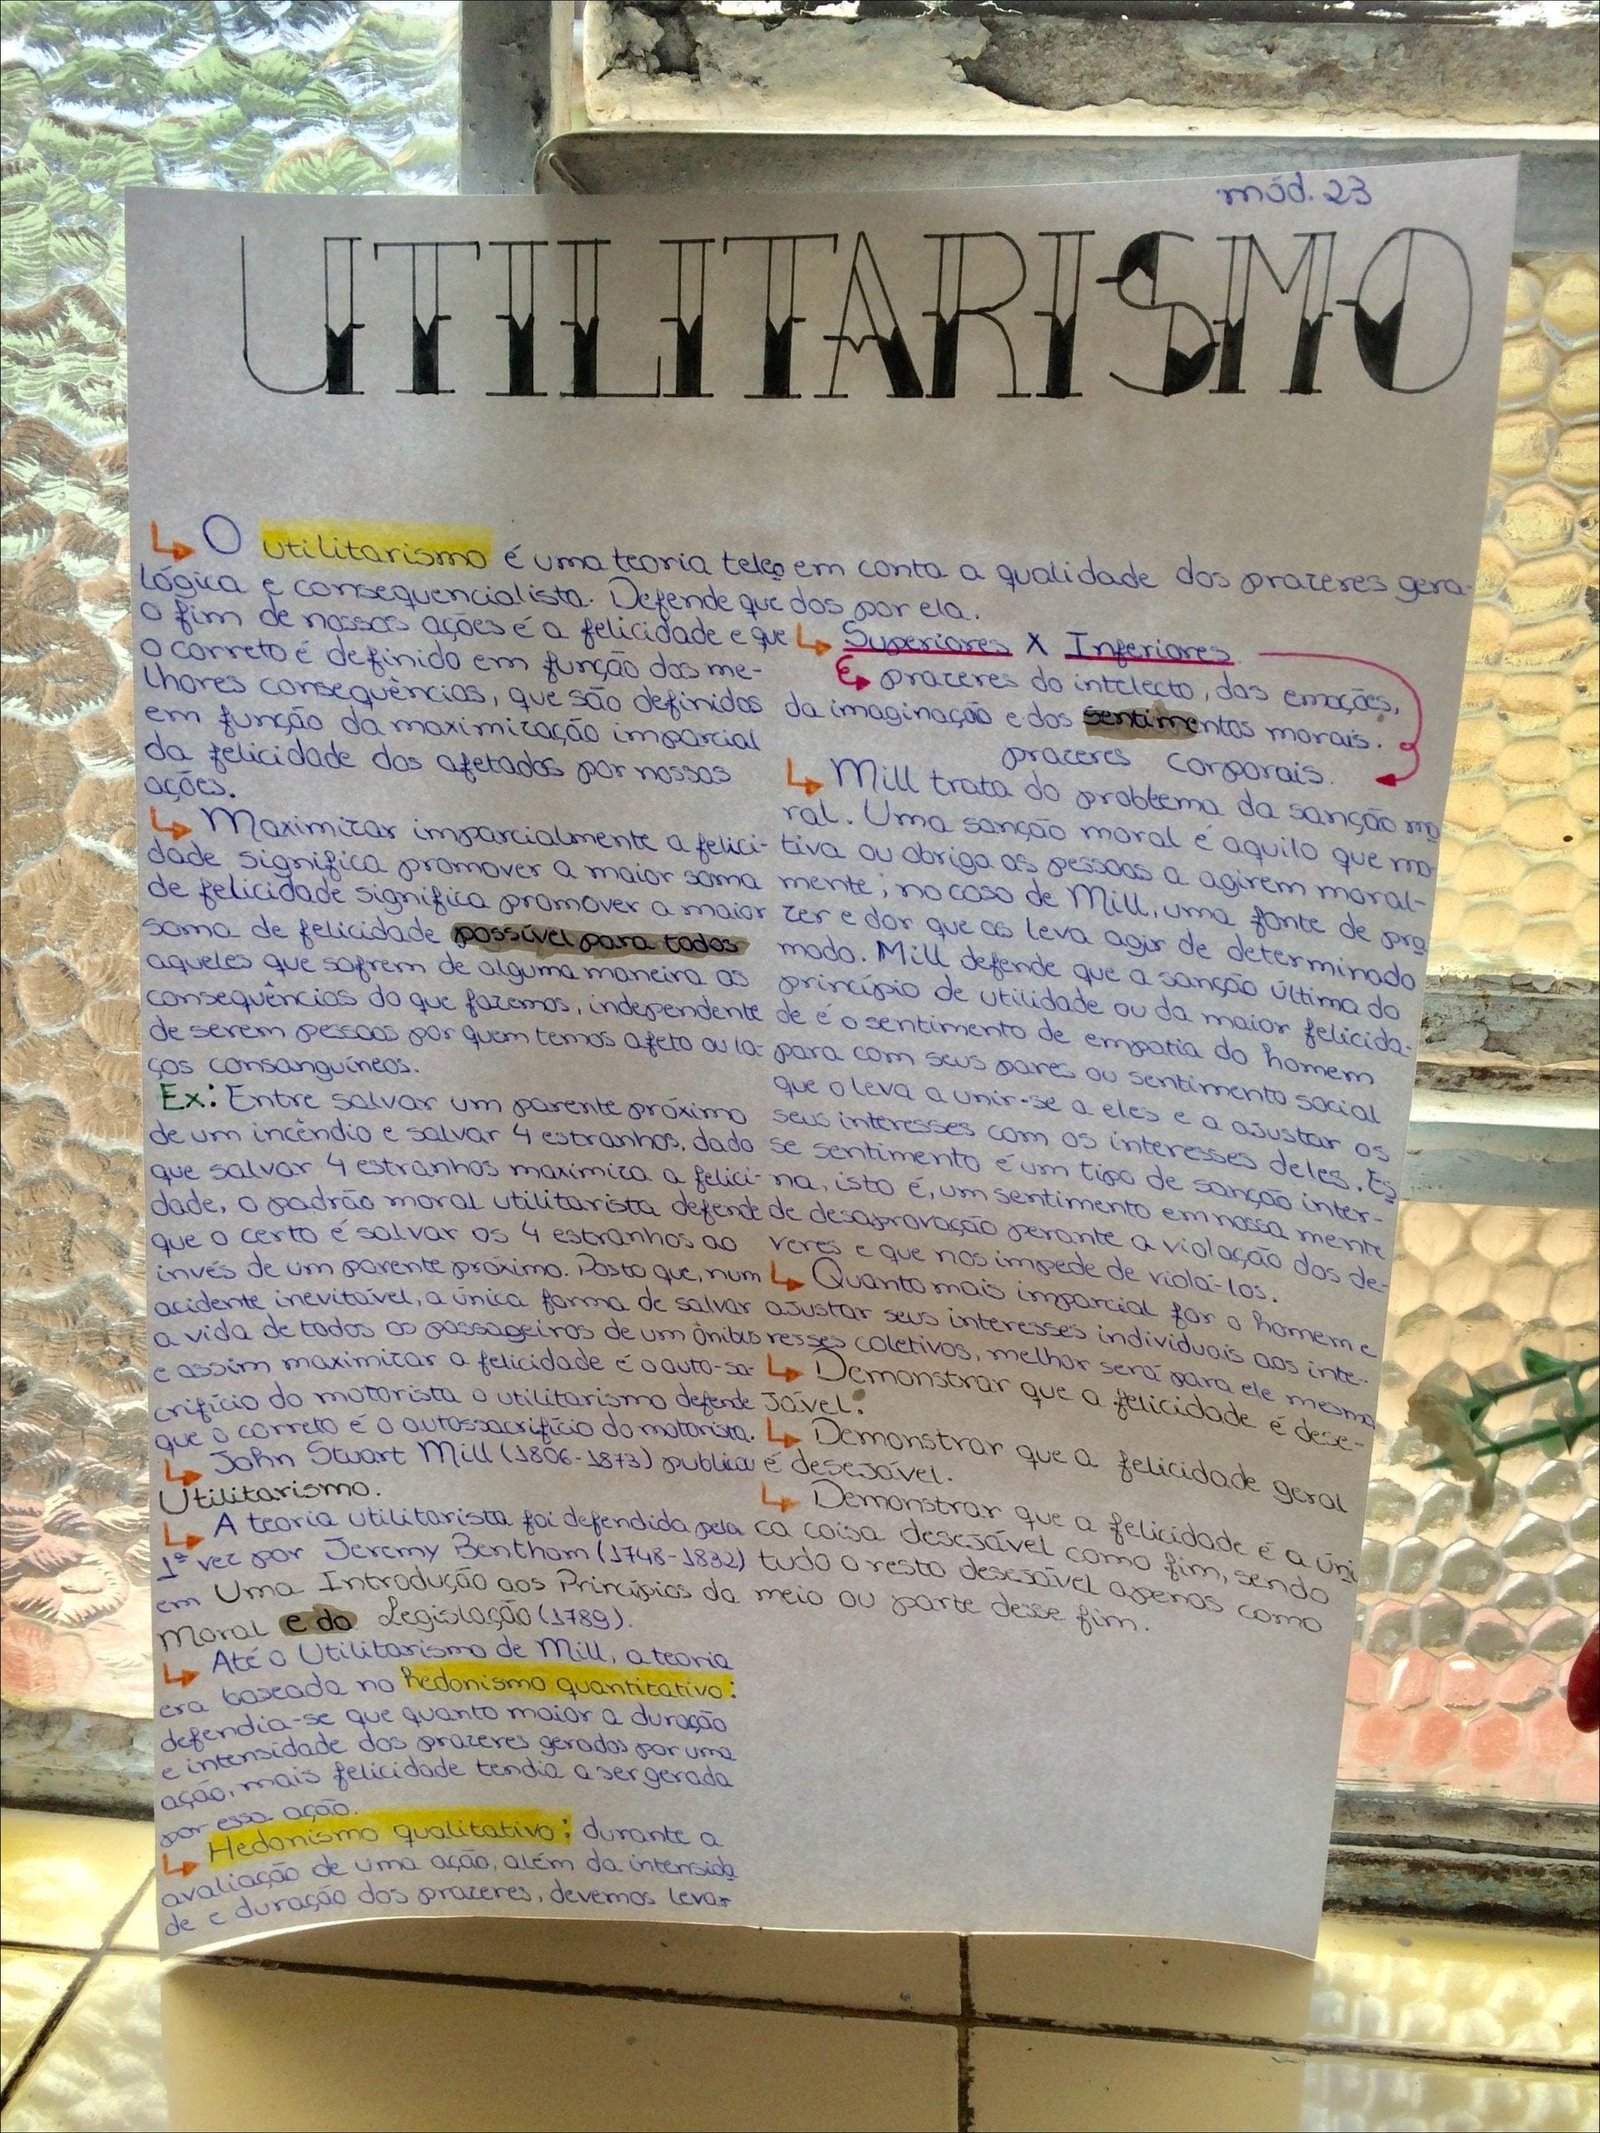 mód. 23
UTILITARISMO
↳ O utilitarismo é uma teoria teleo
lógica e consequencialista. Defende que
o fim de nossas ações é a felicidade e que
o correto é definido em função das me-
lhores consequências, que são definidas
em função da maximização imparcial
da felicidade dos afetados por nossas
ações.
↳ Maximizar imparcialmente a felici-
dade significa promover a maior soma
de felicidade significa promover a maior
soma de felicidade possível para todos
aqueles que sofrem de alguma maneira as
consequências do que fazemos, independente
de serem pessoas por quem temos afeto ou la-
ços consanguíneos.
Ex: Entre salvar um parente próximo
de um incêndio e salvar 4 estranhos, dado
que salvar 4 estranhos maximiza a felici-
dade, o padrão moral utilitarista defende
que o certo é salvar os 4 estranhos ao
invés de um parente próximo. Posto que, num
acidente inevitável, a única forma de salvar
a vida de todos os passageiros de um ônibus
e assim maximizar a felicidade é o auto-sa-
crifício do motorista o utilitarismo defende
que o correto é o autossacrifício do motorista.
↳ John Stuart Mill (1806-1873) publica
Utilitarismo.
↳ A teoria utilitarista foi defendida pela
1ª vez por Jeremy Bentham (1748-1832)
em Uma Introdução aos Princípios da
Moral e da Legislação (1789).
↳ Até o Utilitarismo de Mill, a teoria
era baseada no hedonismo quantitativo:
defendia-se que quanto maior a duração
e intensidade dos prazeres gerados por uma
ação, mais felicidade tendia a ser gerada
por essa ação.
↳ Hedonismo qualitativo: durante a
avaliação de uma ação, além da intensida
de e duração dos prazeres, devemos levar
em conta a qualidade dos prazeres gera-
dos por ela.
↳ Superiores X Inferiores
prazeres do intelecto, das emoções,
da imaginação e dos sentimentos morais.
prazeres corporais.
↳ Mill trata do problema da sanção mo
ral. Uma sanção moral é aquilo que mo
tiva ou obriga as pessoas a agirem moral-
mente; no caso de Mill, uma fonte de pra
zer e dor que as leva agir de determinado
modo. Mill defende que a sanção última do
princípio de utilidade ou da maior felicida-
de é o sentimento de empatia do homem
para com seus pares ou sentimento social
que o leva a unir-se a eles e a ajustar os
seus interesses com os interesses deles. Es
se sentimento é um tipo de sanção inter-
na, isto é, um sentimento em nossa mente
de desaprovação perante a violação dos de-
veres e que nos impede de violá-los.
↳ Quanto mais imparcial for o homem e
ajustar seus interesses individuais aos inte-
resses coletivos, melhor será para ele mesmo
↳ Demonstrar que a felicidade é dese-
jável.
↳ Demonstrar que a felicidade geral
é desejável.
↳ Demonstrar que a felicidade é a úni
ca coisa desejável como fim, sendo
tudo o resto desejável apenas como
meio ou parte desse fim.